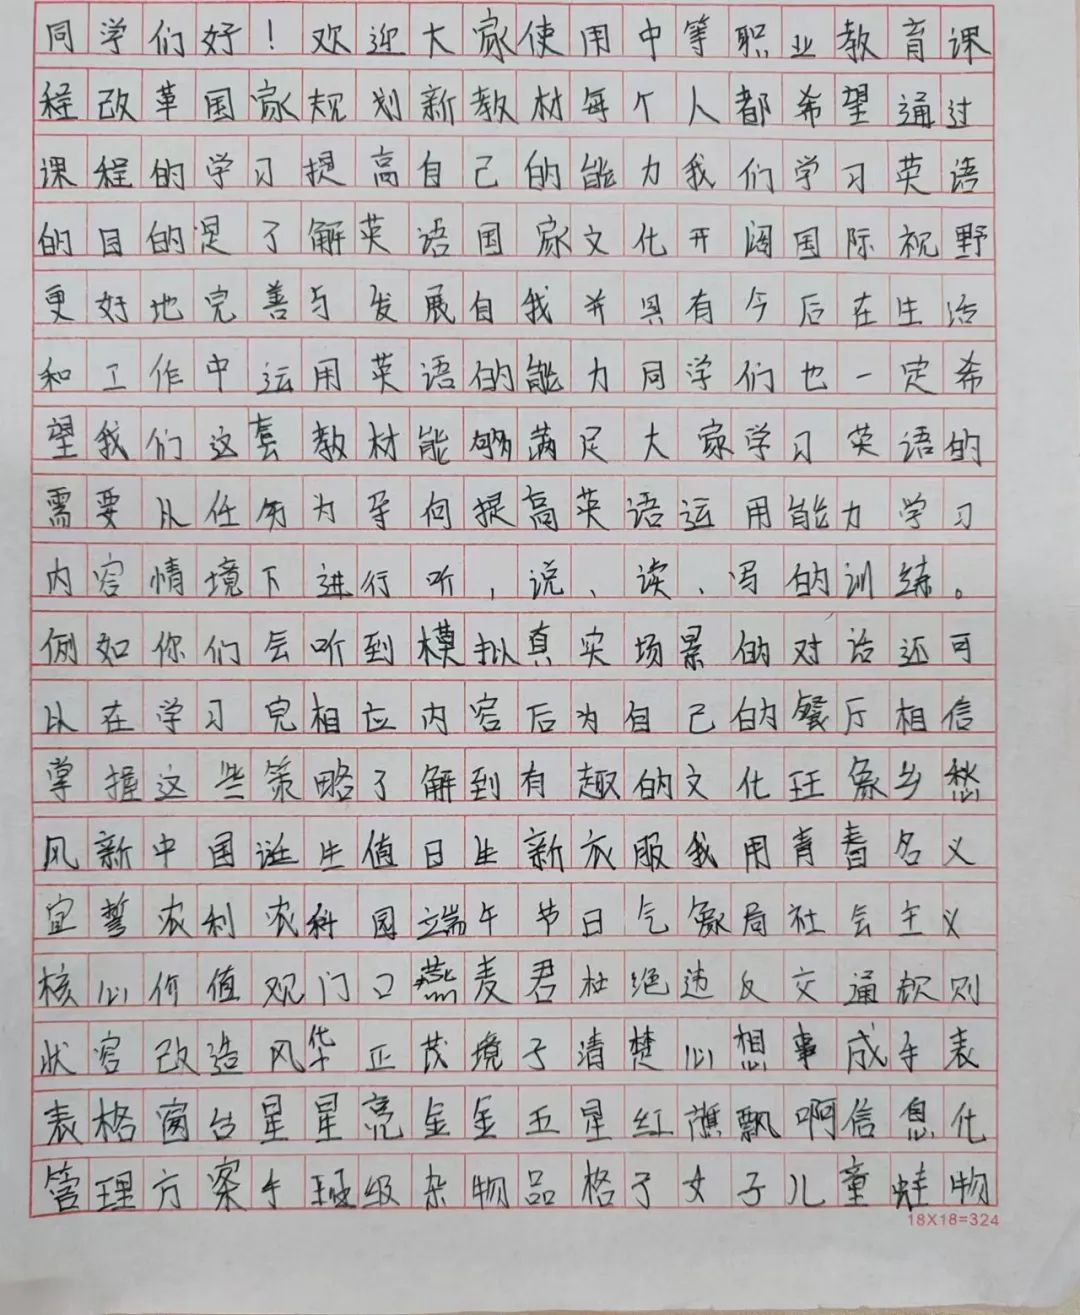 同学们好！欢迎大家使用中等职业教育课
程改革国家规划新教材每个人都希望通过
课程的学习提高自己的能力我们学习英语
的目的是了解英语国家文化开阔国际视野
更好地完善与发展自我并具有今后在生活
和工作中运用英语的能力同学们也一定希
望我们这套教材能够满足大家学习英语的
需要以任务为导向提高英语运用能力学习
内容情境下进行听，说、读、写的训练。
例如你们会听到模拟真实场景的对话还可
以在学习完相应内容后为自己的餐厅相信
掌握这些策略了解到有趣的文化现象乡愁
风新中国诞生值日生新衣服我用青春名义
宣誓农利农科园端午节日气象局社会主义
核心价值观门口燕麦君杜绝违反交通规则
状容改造风华正茂境子清楚心想事成手表
表格窗台星星亮金金五星红旗飘啊信息化
管理方案个班级杂物品格子女子儿童蛙物
18X18=324